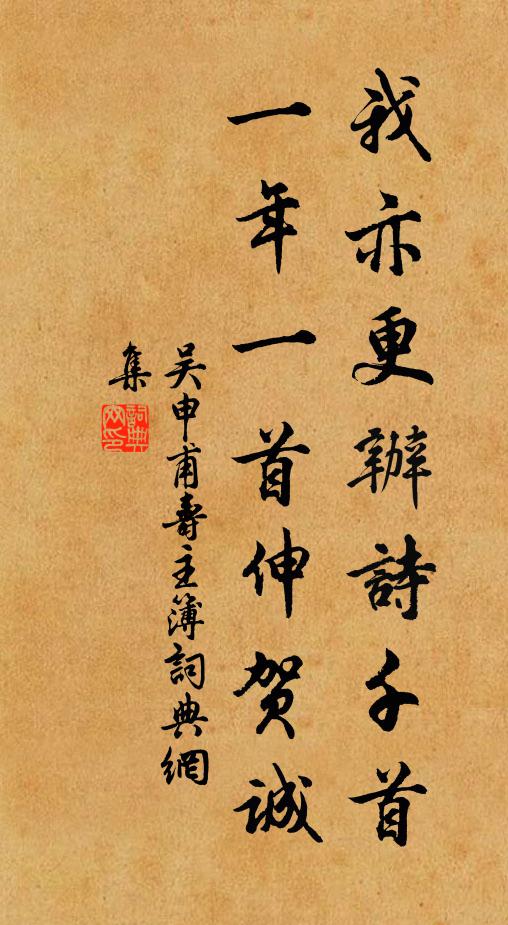 我亦更辦詩千首
一年一首伸贺誠
吴申甫壽主簿詞典網
集
詞典網印